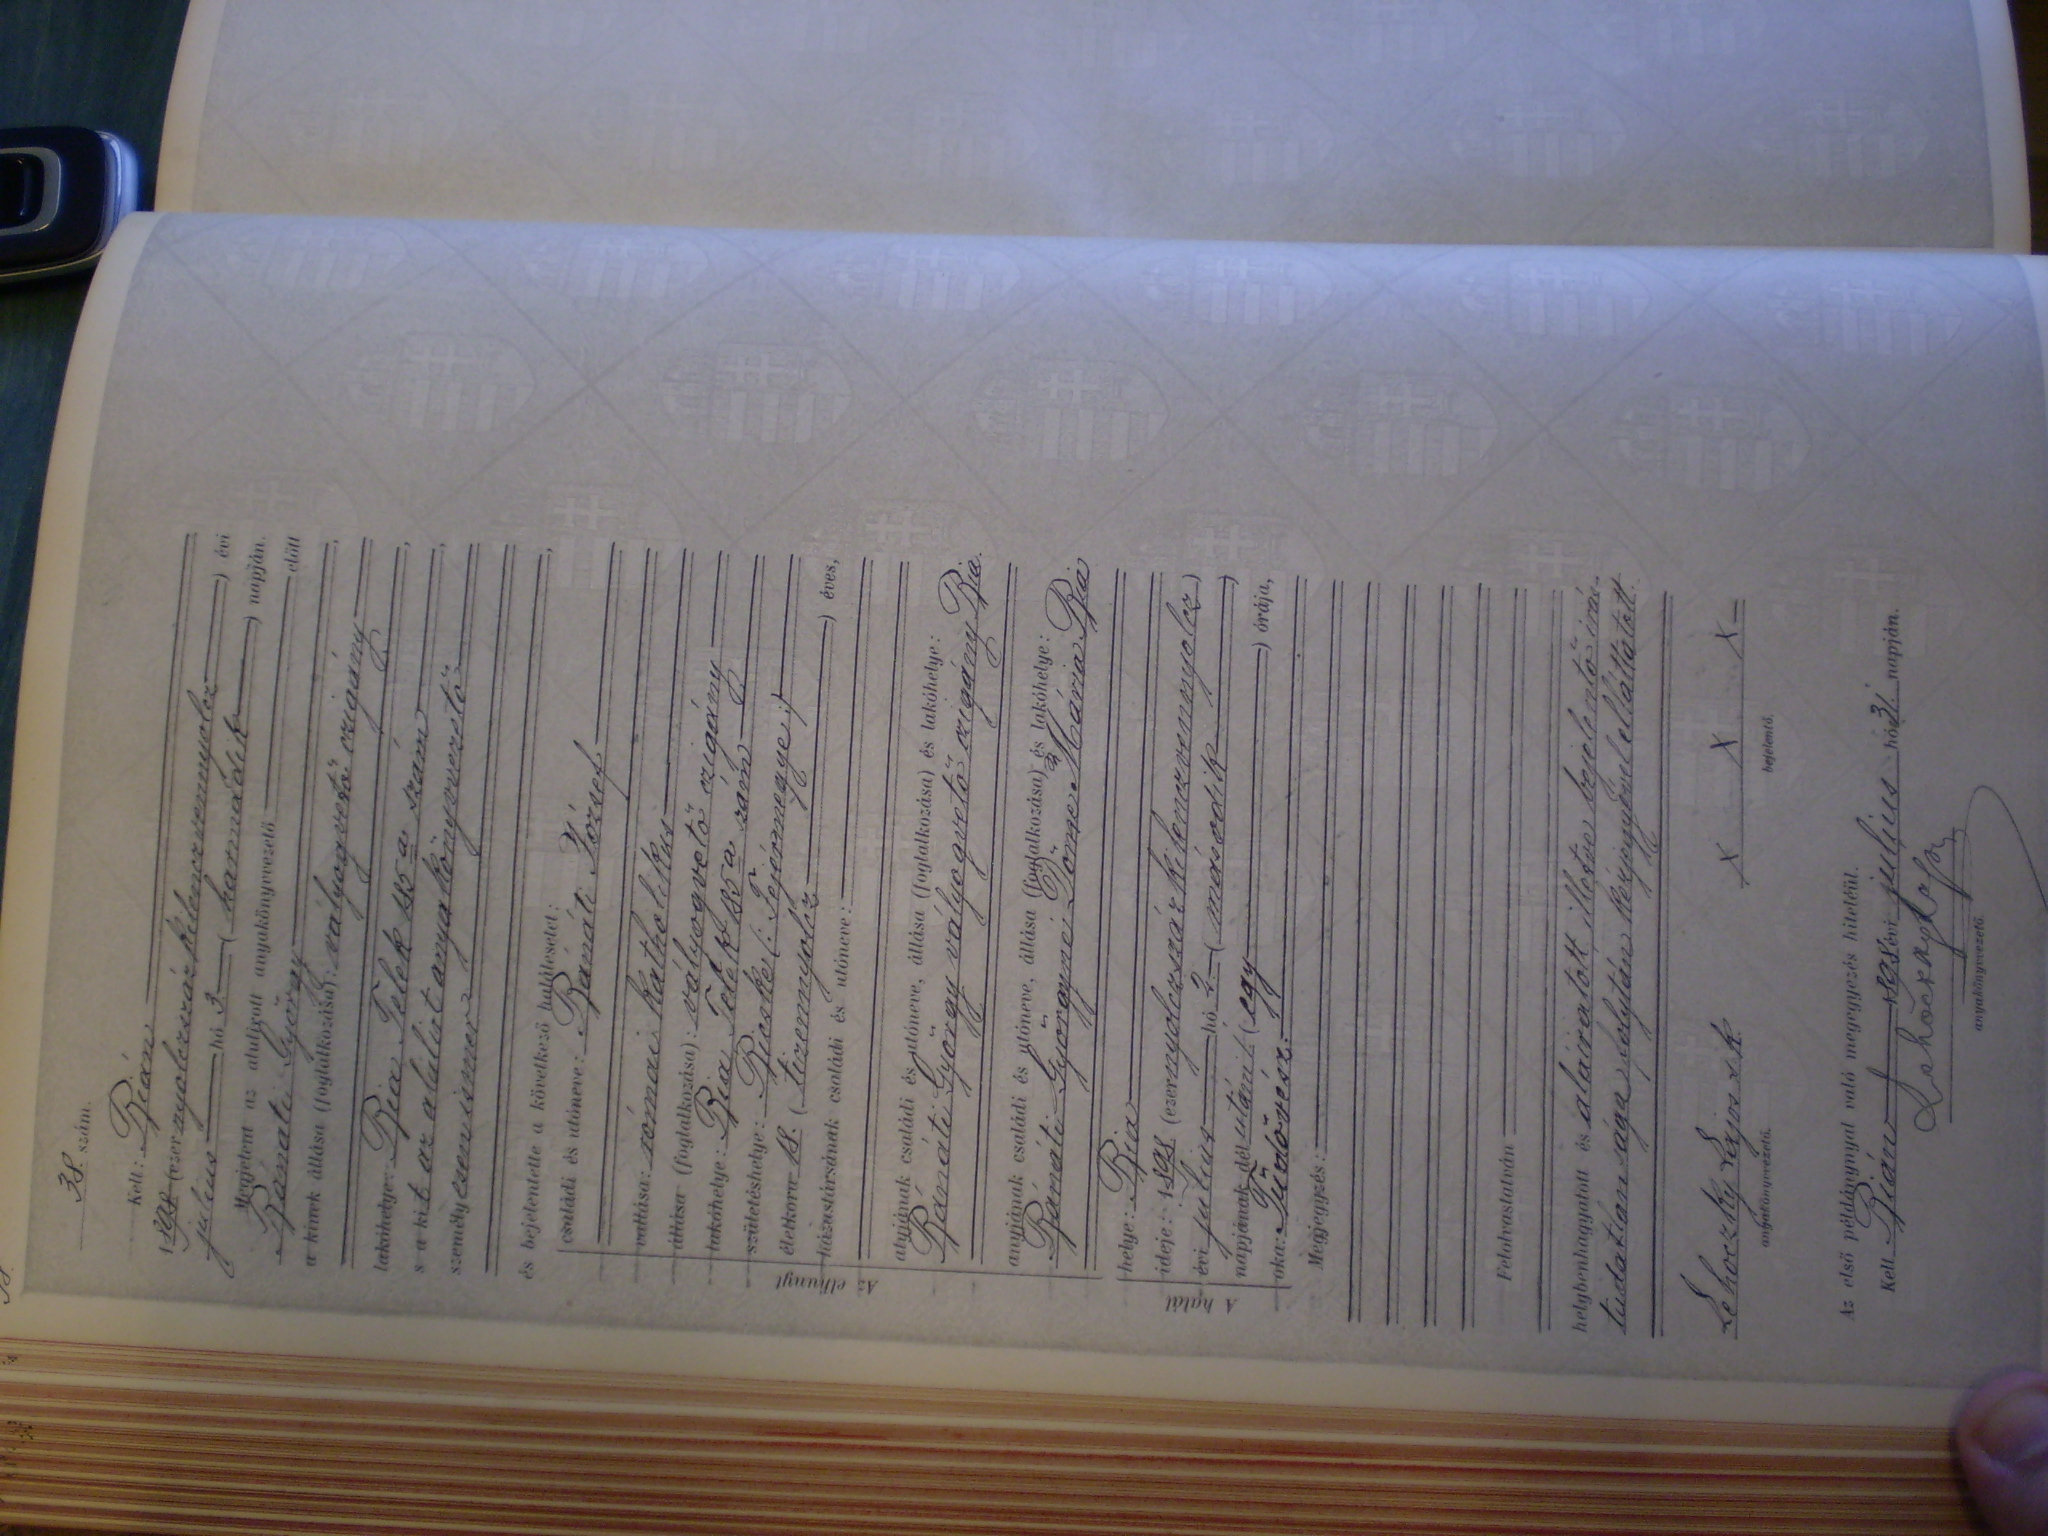 38. szám.
Kelt: Bián
1898 (ezer nyolczszázkilenczvennyolcz) évi
julius hó 3 (harmadik) napján.
Megjelent az alulírott anyakönyvezető előtt
Bánáti György
a kinek állása (foglalkozása): vályogvető czigány,
lakóhelye: Bia Telek 185 a szám,
s a kit az alulírt anyakönyvvezető,
személyesen ismer,
és bejelentette a következő halálesetet:
családi és utóneve: Bánáti József
vallása: római katholikus
állása (foglalkozása): vályogvető czigány
lakóhelye: Bia Telek 185 a szám
születéshelye: Bicske (: Fejérmegye :)
életkora 18. (tizennyolcz) éves,
házastársának családi és utóneve:
Az elhunyt
atyjának családi és utóneve, állása (foglalkozása) és lakóhelye:
Bánáti György vályogvető czigány Bia.
anyjának családi és utóneve, állása (foglalkozása) és lakóhelye:
Bánáti Györgyné Döme Mária Bia
A halál
helye: Bia
ideje: 1898 (ezernyolczszázkilenczvennyolcz)
évi julius hó 2. (második)
napjának dél utáni 1 (egy) órája,
oka: Tüdővész.
Megjegyzés:
Felolvastatván
helybenhagyatott és aláiratott illetve bejelentő irás-
tudatlansága folytán kézjegyével elláttatott.
Lehoczky Lajos s.k. x x x x
anyakönyvvezető. bejelentő.
Az első példánynyal való megegyezés hiteléül.
Kelt Bián 1898 évi julius hó 3. napján.
Lehoczky Lajos
anyakönyvvezető.